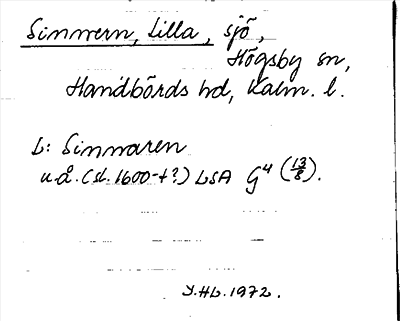 Simmern, Lilla, sjö,
Högsby sn,
Handbörds hd, Kalm. l.
L: Simmaren
u.å. (sl. 1600-t?) LSA G⁴ (13/8).
Y.HL.1972.